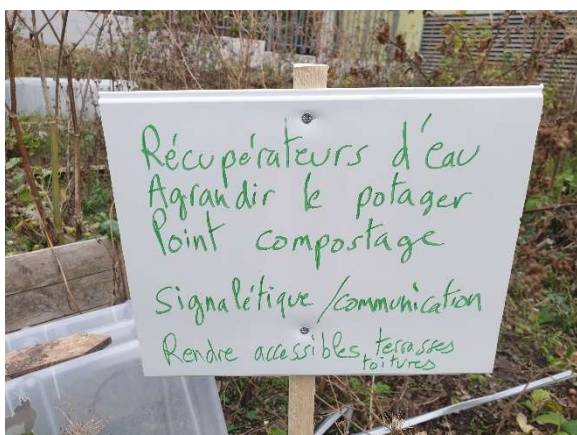 Récupérateurs d'eau
Agrandir le potager
Point compostage
Signalétique / communication
Rendre accessibles terrasses
toitures